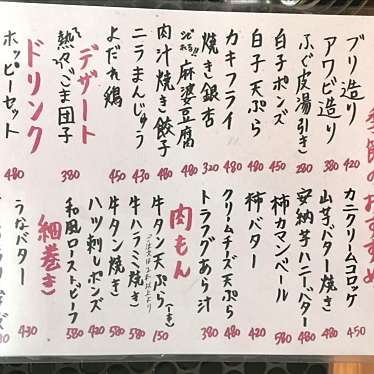 季節のおすすめ
ブリ造り 420
アワビ造り 380
ふぐ皮湯引き 280
白子ポンズ 450
白子天ぷら 480
カキフライ 480
焼き銀杏 320
麻婆豆腐
肉汁焼き餃子
ニラまんじゅう 430
よだれ鶏 450
デザート
熱々ごま団子 380
ドリンク
ホッピーセット 480
カニクリームコロッケ 450
山芋バター焼き 480
安納芋ハニーバター 480
柿カマンベール 580
柿バター 420
クリームチーズ天ぷら 480
トラフグあら汁 380
肉もん
牛タン天ぷら(一本) 150
(ご注文は2本以上より)
牛ハラミ焼き 580
牛タン焼き 580
ハツ刺しポンズ 420
和風ローストビーフ 580
細巻き
うなバター 430